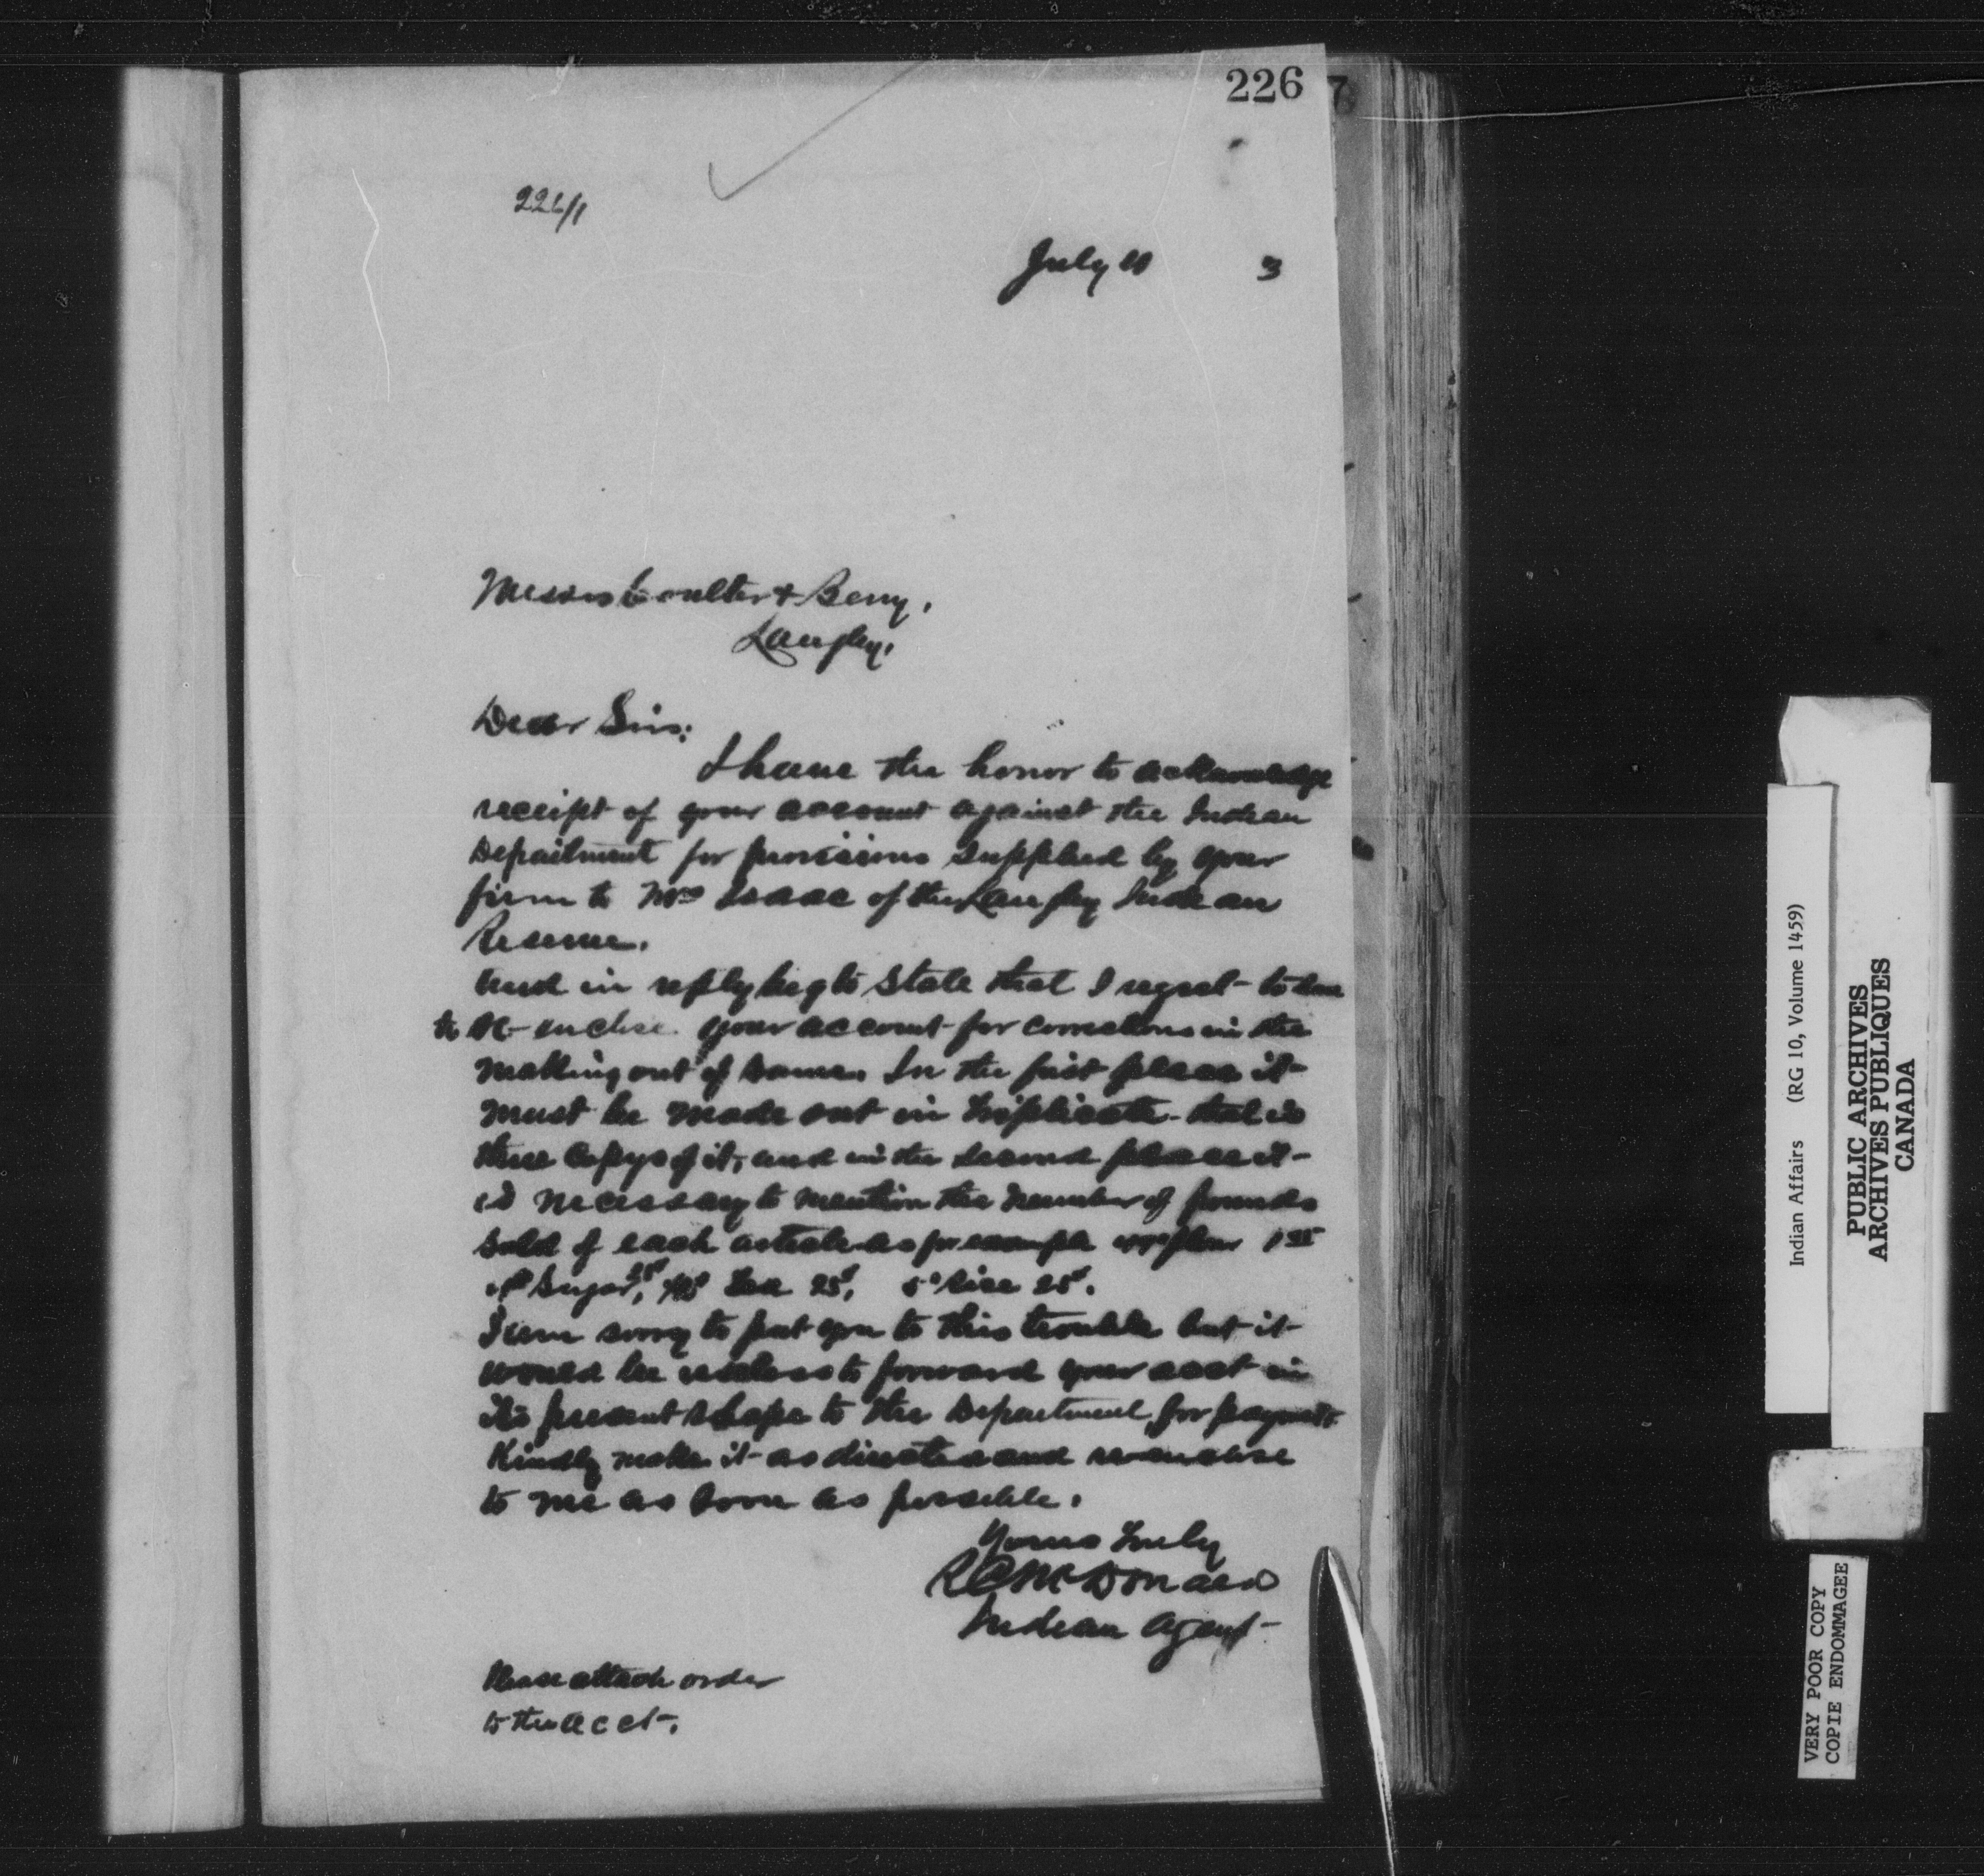 226
226/1
July 3
Messrs Coulter & Berry,
Langley,
Dear Sirs:
I have the honor to acknowledge
receipt of your account against the Indian
Department for provisions supplied by your
firm to Mrs Isaac of the Langley Indian
Reserve.
and in reply beg to state that I regret to have
to re-enclose your account for corrections in the
making out of same. In the first place it
must be made out in triplicate - that is
three copys of it, and in the second place it
is necessary to mention the number of pounds
sold of each article as for example flour
Sugar, Tea 25¢, Rice 25¢.
I am sorry to put you to this trouble but it
would be useless to forward your acct in
its present shape to the Department for payment.
Kindly make it as directed and re-enclose
to me as soon as possible.
Yours truly
R C McDonald
Indian Agent
Please attach order
to the acct.
Indian Affairs (RG 10, Volume 1459)
PUBLIC ARCHIVES
ARCHIVES PUBLIQUES
CANADA
VERY POOR COPY
COPIE ENDOMMAGEE